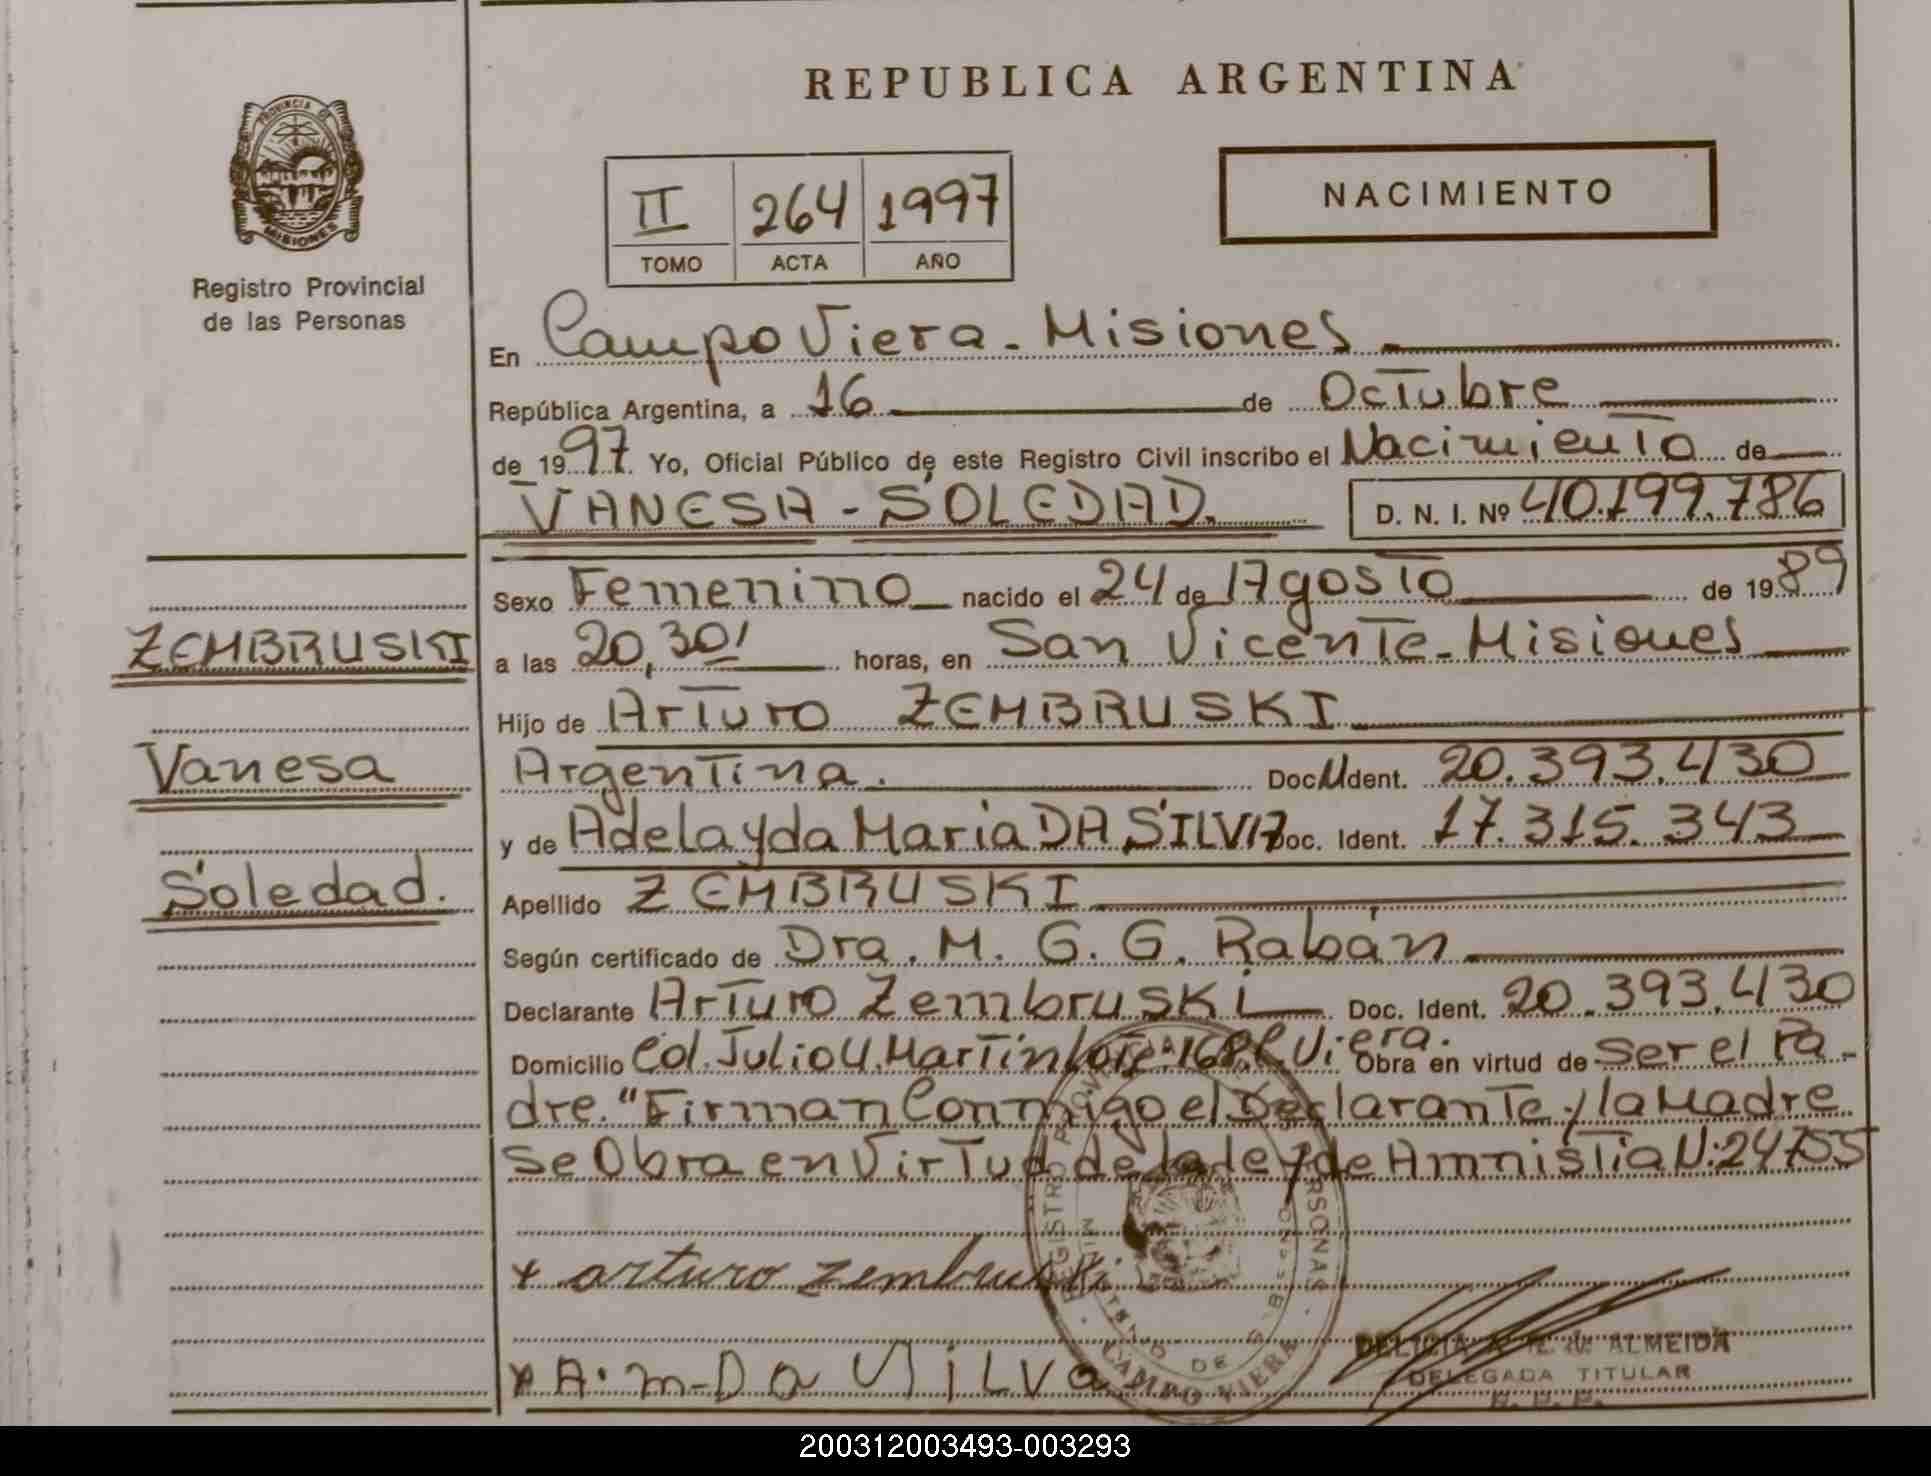 REPUBLICA ARGENTINA
PROVINCIA DE
MISIONES
Registro Provincial
de las Personas
II 264 1997
TOMO ACTA AÑO
NACIMIENTO
En Campo Viera - Misiones
República Argentina, a 16 de Octubre
de 1997. Yo, Oficial Público de este Registro Civil inscribo el Nacimiento de
VANESA - SOLEDAD. D. N. I. Nº 40.199.786
Sexo Femenino nacido el 24 de Agosto de 1989
ZEMBRUSKI
a las 20,30' horas, en San Vicente - Misiones
Hijo de Arturo ZEMBRUSKI
Vanesa
Argentina. Doc. Ident. 20.393.430
y de Adelayda Maria DA SILVA Doc. Ident. 17.315.343
Soledad.
Apellido ZEMBRUSKI
Según certificado de Dra. M. G. G. Rabán
Declarante Arturo Zembruski Doc. Ident. 20.393.430
Domicilio Col. Julio U. Martin Lote 168, C. Viera. Obra en virtud de Ser el Pa-
dre. "Firman Conmigo el Declarante y la Madre
Se Obra en Virtud de la ley de Amnistia N: 24755
x arturo zembruski
x A. m - Da Silva
REGISTRO PROVINCIAL DE LAS PERSONAS
CAMPO VIERA
DELICIA ALMEIDA
DELEGADA TITULAR
R. P. P.
200312003493-003293